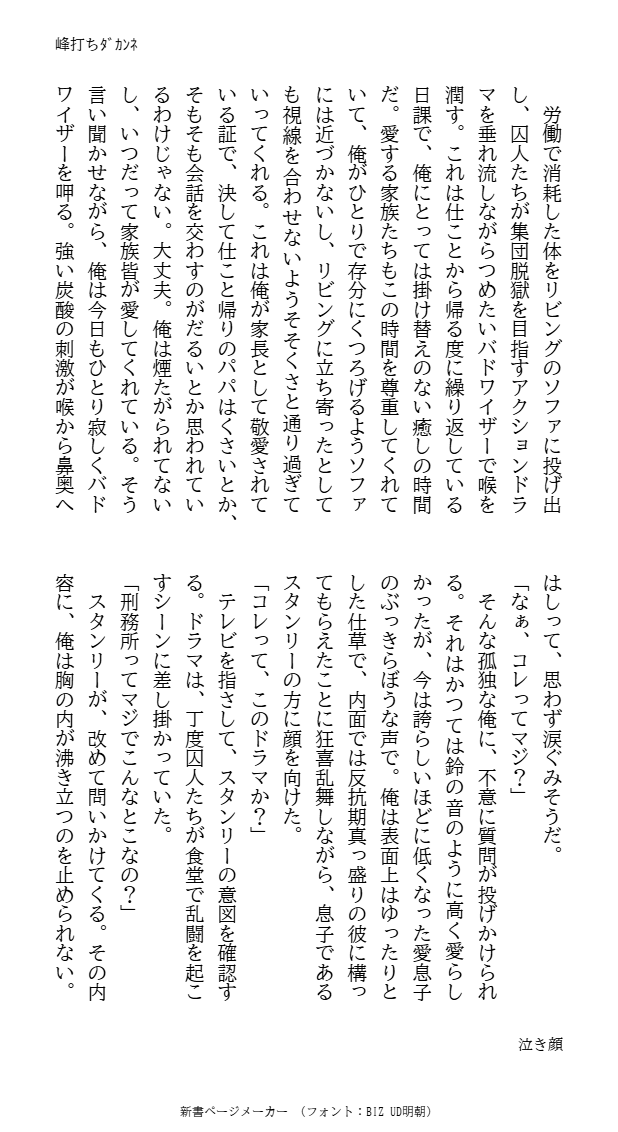 峰打ちﾀﾞｶﾝﾈ
　労働で消耗した体をリビングのソファに投げ出
し、囚人たちが集団脱獄を目指すアクションドラ
マを垂れ流しながらつめたいバドワイザーで喉を
潤す。これは仕ことから帰る度に繰り返している
日課で、俺にとっては掛け替えのない癒しの時間
だ。愛する家族たちもこの時間を尊重してくれて
いて、俺がひとりで存分にくつろげるようソファ
には近づかないし、リビングに立ち寄ったとして
も視線を合わせないようそそくさと通り過ぎて
いってくれる。これは俺が家長として敬愛されて
いる証で、決して仕こと帰りのパパはくさいとか、
そもそも会話を交わすのがだるいとか思われてい
るわけじゃない。大丈夫。俺は煙たがられてない
し、いつだって家族皆が愛してくれている。そう
言い聞かせながら、俺は今日もひとり寂しくバド
ワイザーを呷る。強い炭酸の刺激が喉から鼻奥へ
はしって、思わず涙ぐみそうだ。
「なぁ、コレってマジ？」
　そんな孤独な俺に、不意に質問が投げかけられ
る。それはかつては鈴の音のように高く愛らし
かったが、今は誇らしいほどに低くなった愛息子
のぶっきらぼうな声で。俺は表面上はゆったりと
した仕草で、内面では反抗期真っ盛りの彼に構っ
てもらえたことに狂喜乱舞しながら、息子である
スタンリーの方に顔を向けた。
「コレって、このドラマか？」
　テレビを指さして、スタンリーの意図を確認す
る。ドラマは、丁度囚人たちが食堂で乱闘を起こ
すシーンに差し掛かっていた。
「刑務所ってマジでこんなとこなの？」
　スタンリーが、改めて問いかけてくる。その内
容に、俺は胸の内が沸き立つのを止められない。
泣き顔
新書ページメーカー　（フォント：BIZ UD明朝）